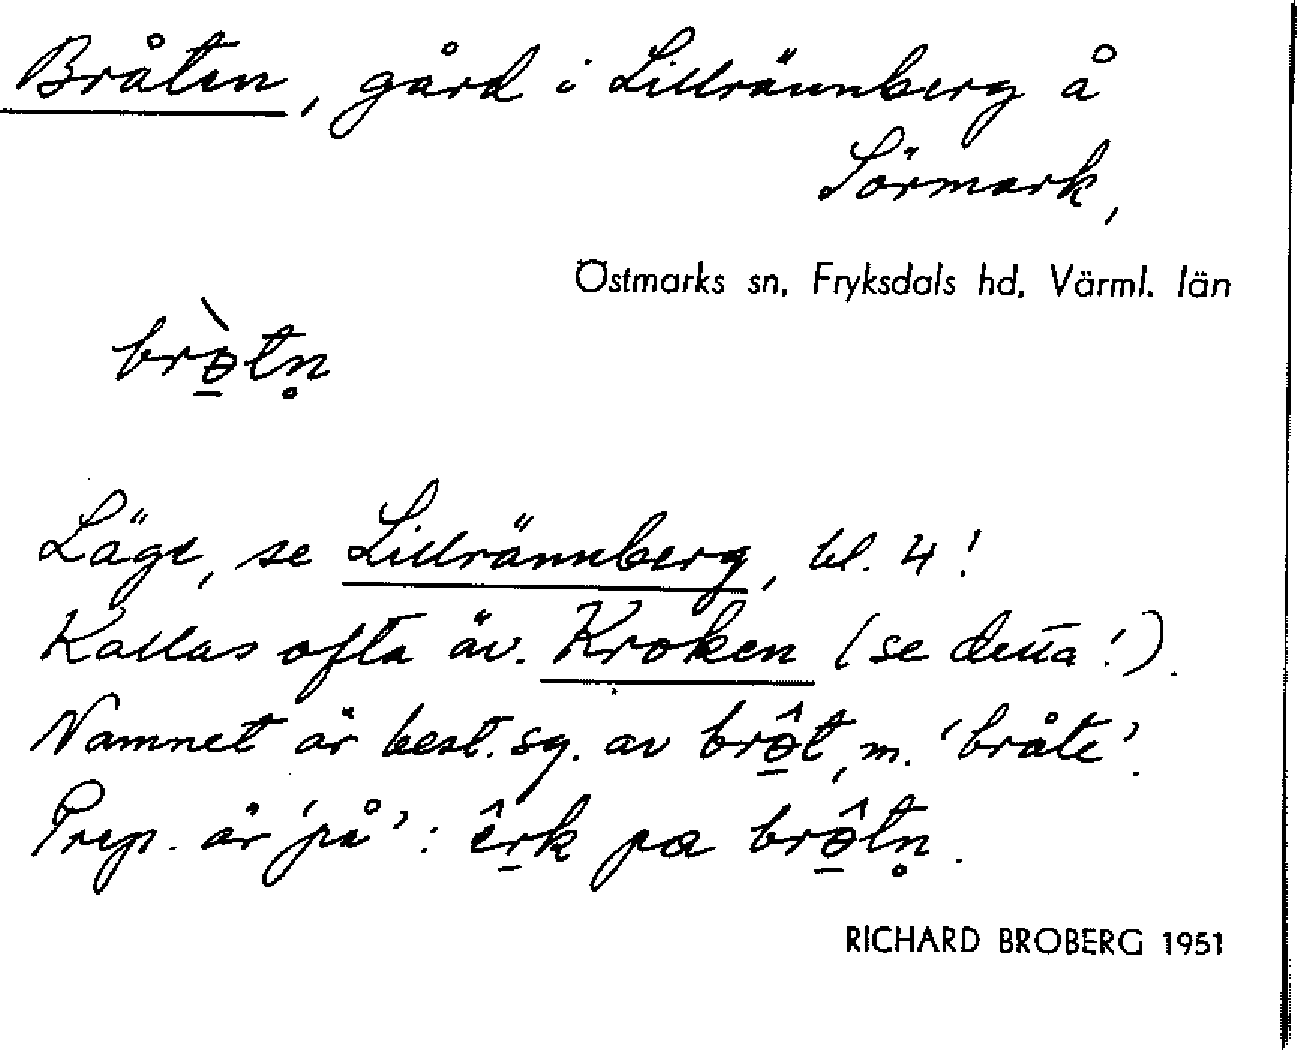 Bråten, gård i Lillrännberg å
Sörmark,
Östmarks sn, Fryksdals hd, Värml. län
brə̱̀tn̥
Läge, se Lillrännberg, bl. 4!
Kallas ofta äv. Kroken (se detta!).
Namnet är best. sg. av brə̱̂t, m. 'bråte'.
Prep. är 'på': êṟk pa brə̱̂tn̥.
RICHARD BROBERG 1951